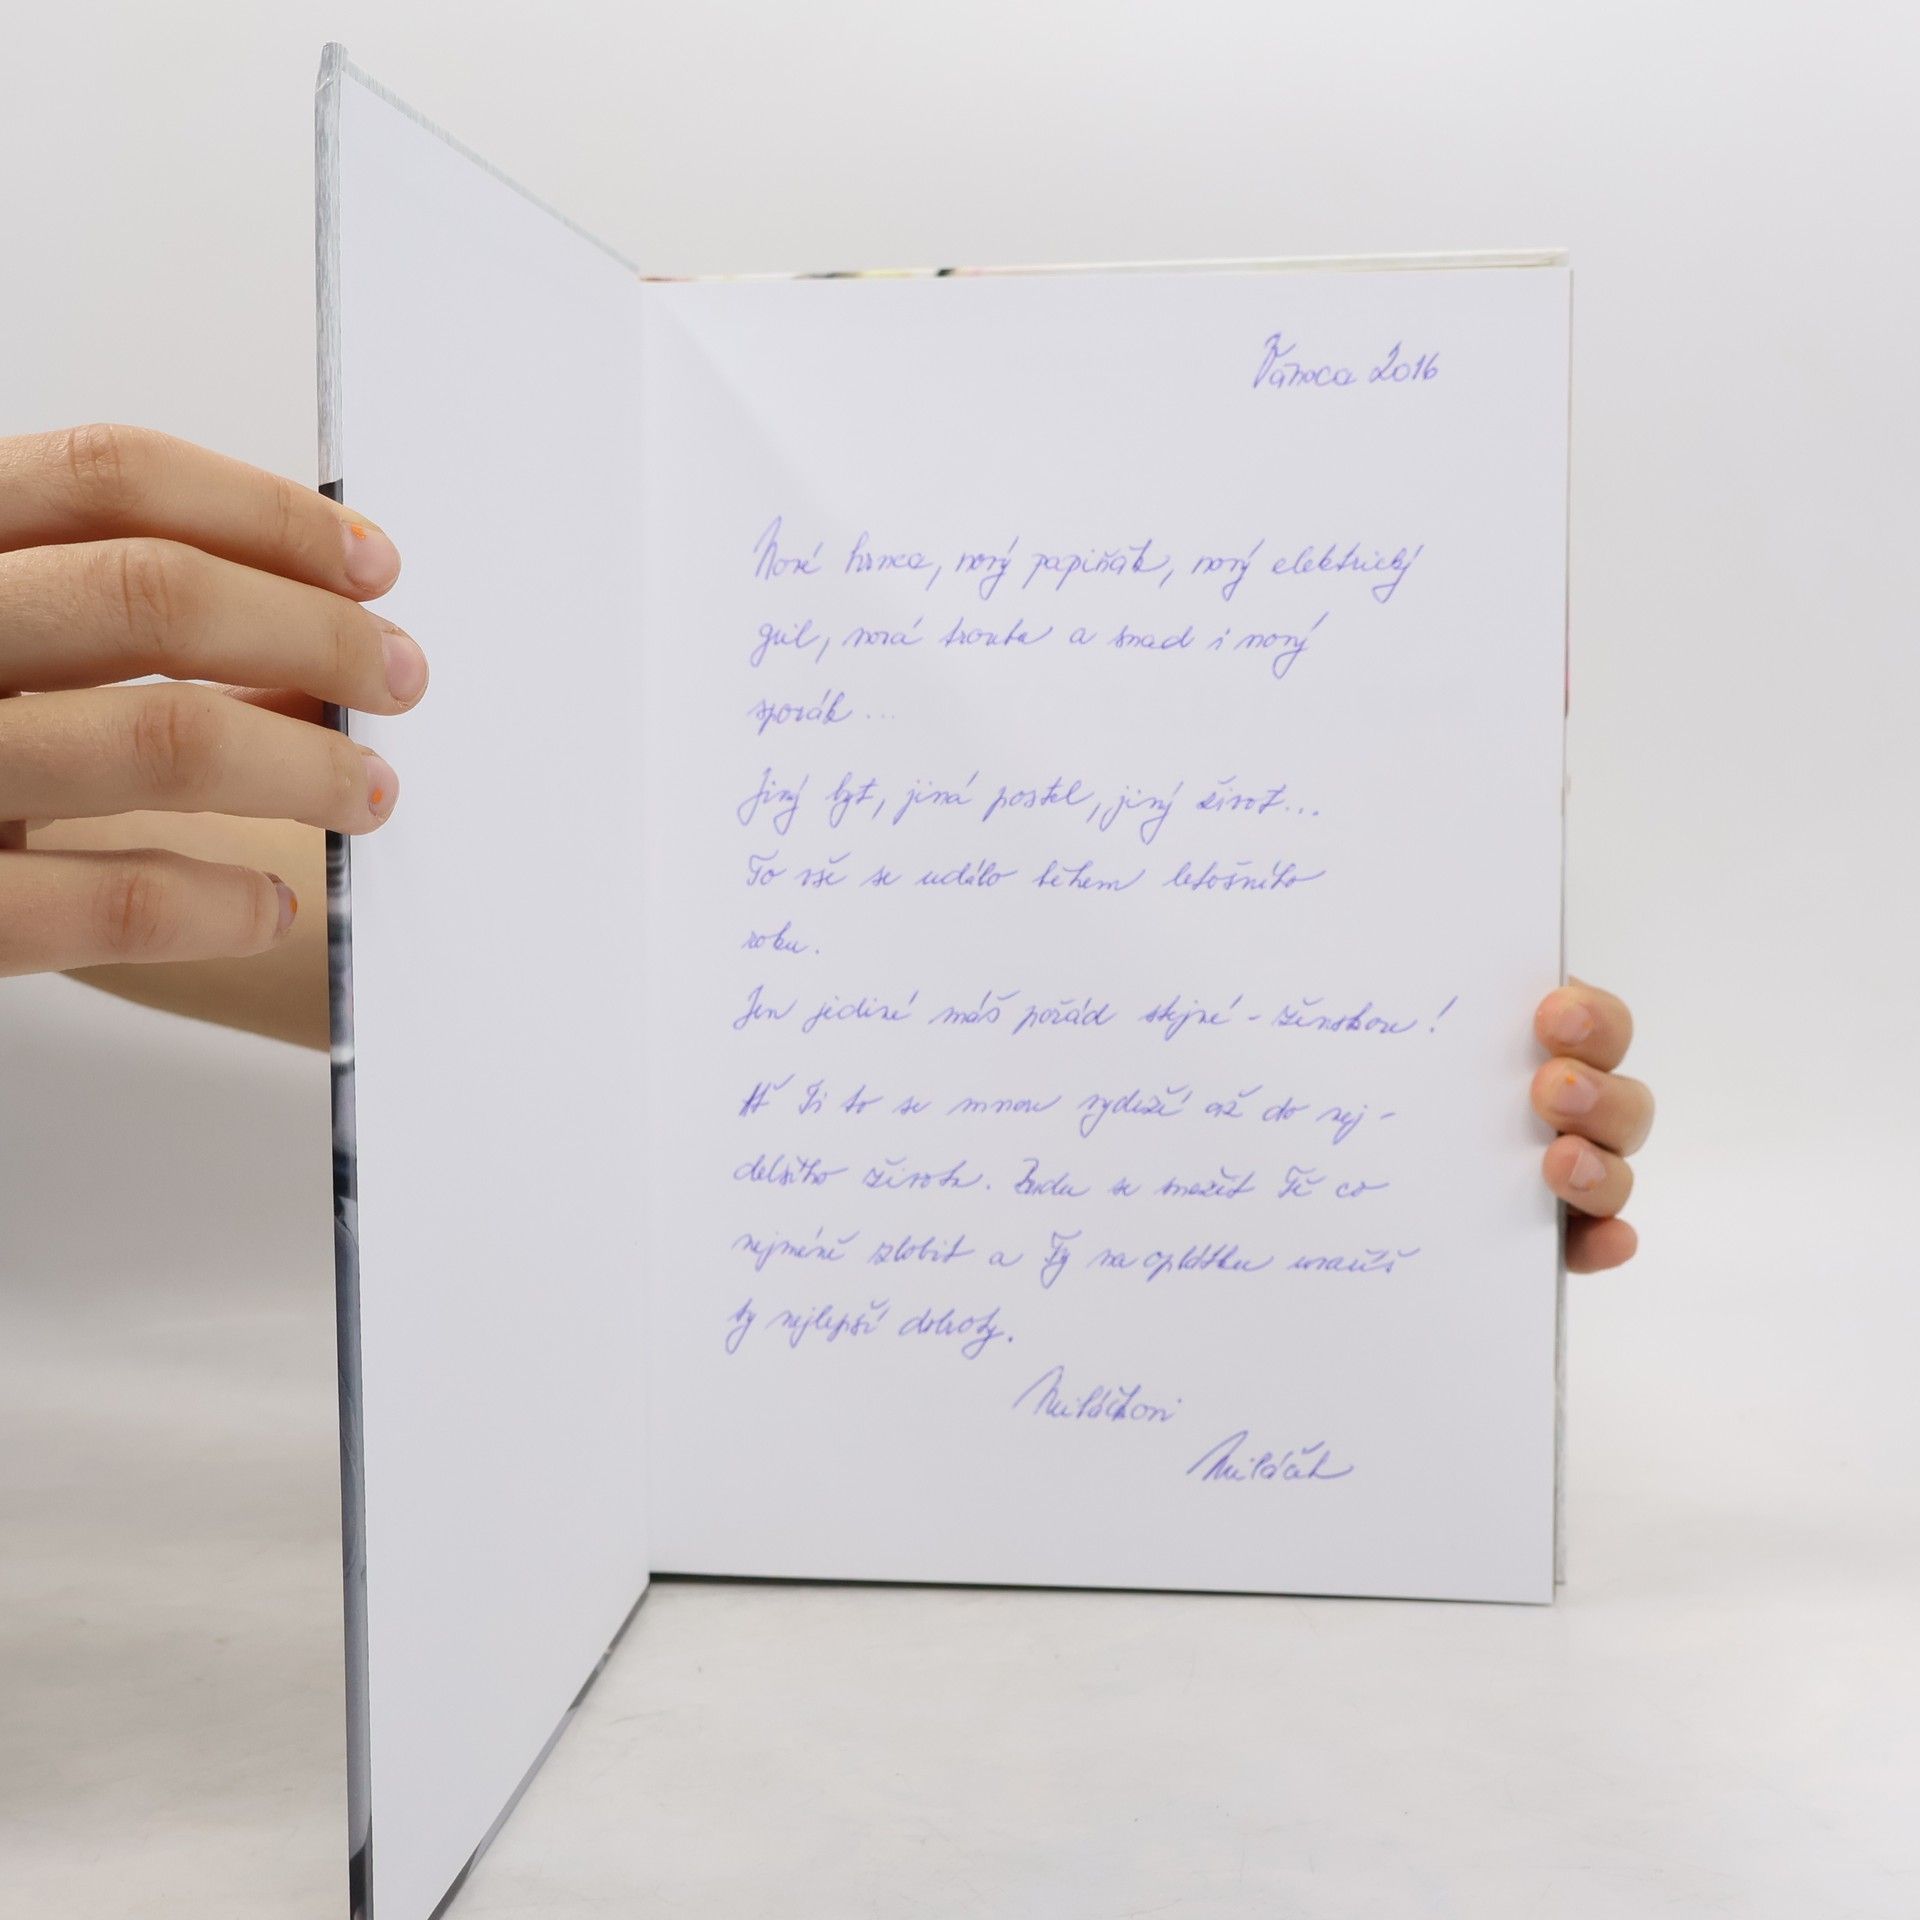 Vánoce 2016
Nové hrnce, nový papiňák, nový elektrický
gril, nová trouba a snad i nový
sporák ...
Jiný byt, jiná postel, jiný život...
To vše se událo během letošního
roku.
Jen jediné máš pořád stejné - ženskou!
Ať Ti to se mnou vydrží až do nej-
delšího života. Budu se snažit Tě co
nejméně zlobit a Ty na oplátku uvaříš
ty nejlepší dobroty.
Miláčkovi
Miláček